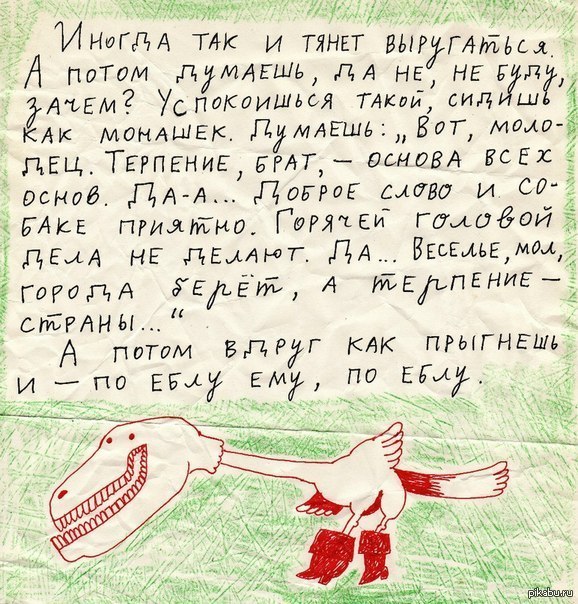 Иногда так и тянет выругаться.
А потом думаешь, да не, не буду,
зачем? Успокоишься такой, сидишь
как монашек. Думаешь: „Вот, моло-
дец. Терпение, брат, – основа всех
основ. Да-а... Доброе слово и со-
баке приятно. Горячей головой
дела не делают. Да... Веселье, мол,
города берёт, а терпение –
страны..."
А потом вдруг как прыгнешь
и – по еблу ему, по еблу.
pikabu.ru